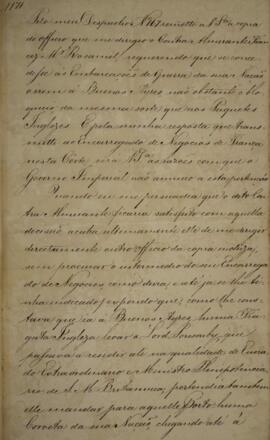 Pelo meu Despacho Nº 17 remetti a V. Sª a copia
do officio que me dirigio o Contra Almirante Francez
Mr Rosamel requerendo que se conce
da às Embarcacoens de Guerra da sua Nação
o irem á Buenos Ayres não obstante o blo
queio da mesma sorte que aos Paquetes
Inglezes. E pela minha resposta que trans
mitto ao Encarregado de Negocios de França
nesta Corte verá V. Sª as rasões com que o
Governo Imperial não annuio a esta pertenção
Quando eu me persuadia que o dito Con
tra Almirante ficaria satisfeito com aquella
decisão acaba ultimamente elle de me dirigir
directamente outro officio da copia inclusa,
sem procurar o intermedio do seu Encarrega
do de Negocios como devia, e até já se lhe ti
nha indicado, expondo que; como lhe cons
tava que ia á Buenos Ayres huma Fra
gata Ingleza levar a Lord Ponsonby, que
passava a residir ali na qualidade de Envia
do Extraordinario e Ministro Plenipotencia
rio de S. M. Britannica, pertendia tambem
elle mandar para aquelle Porto huma
Corveta da sua Nação, chegando até á